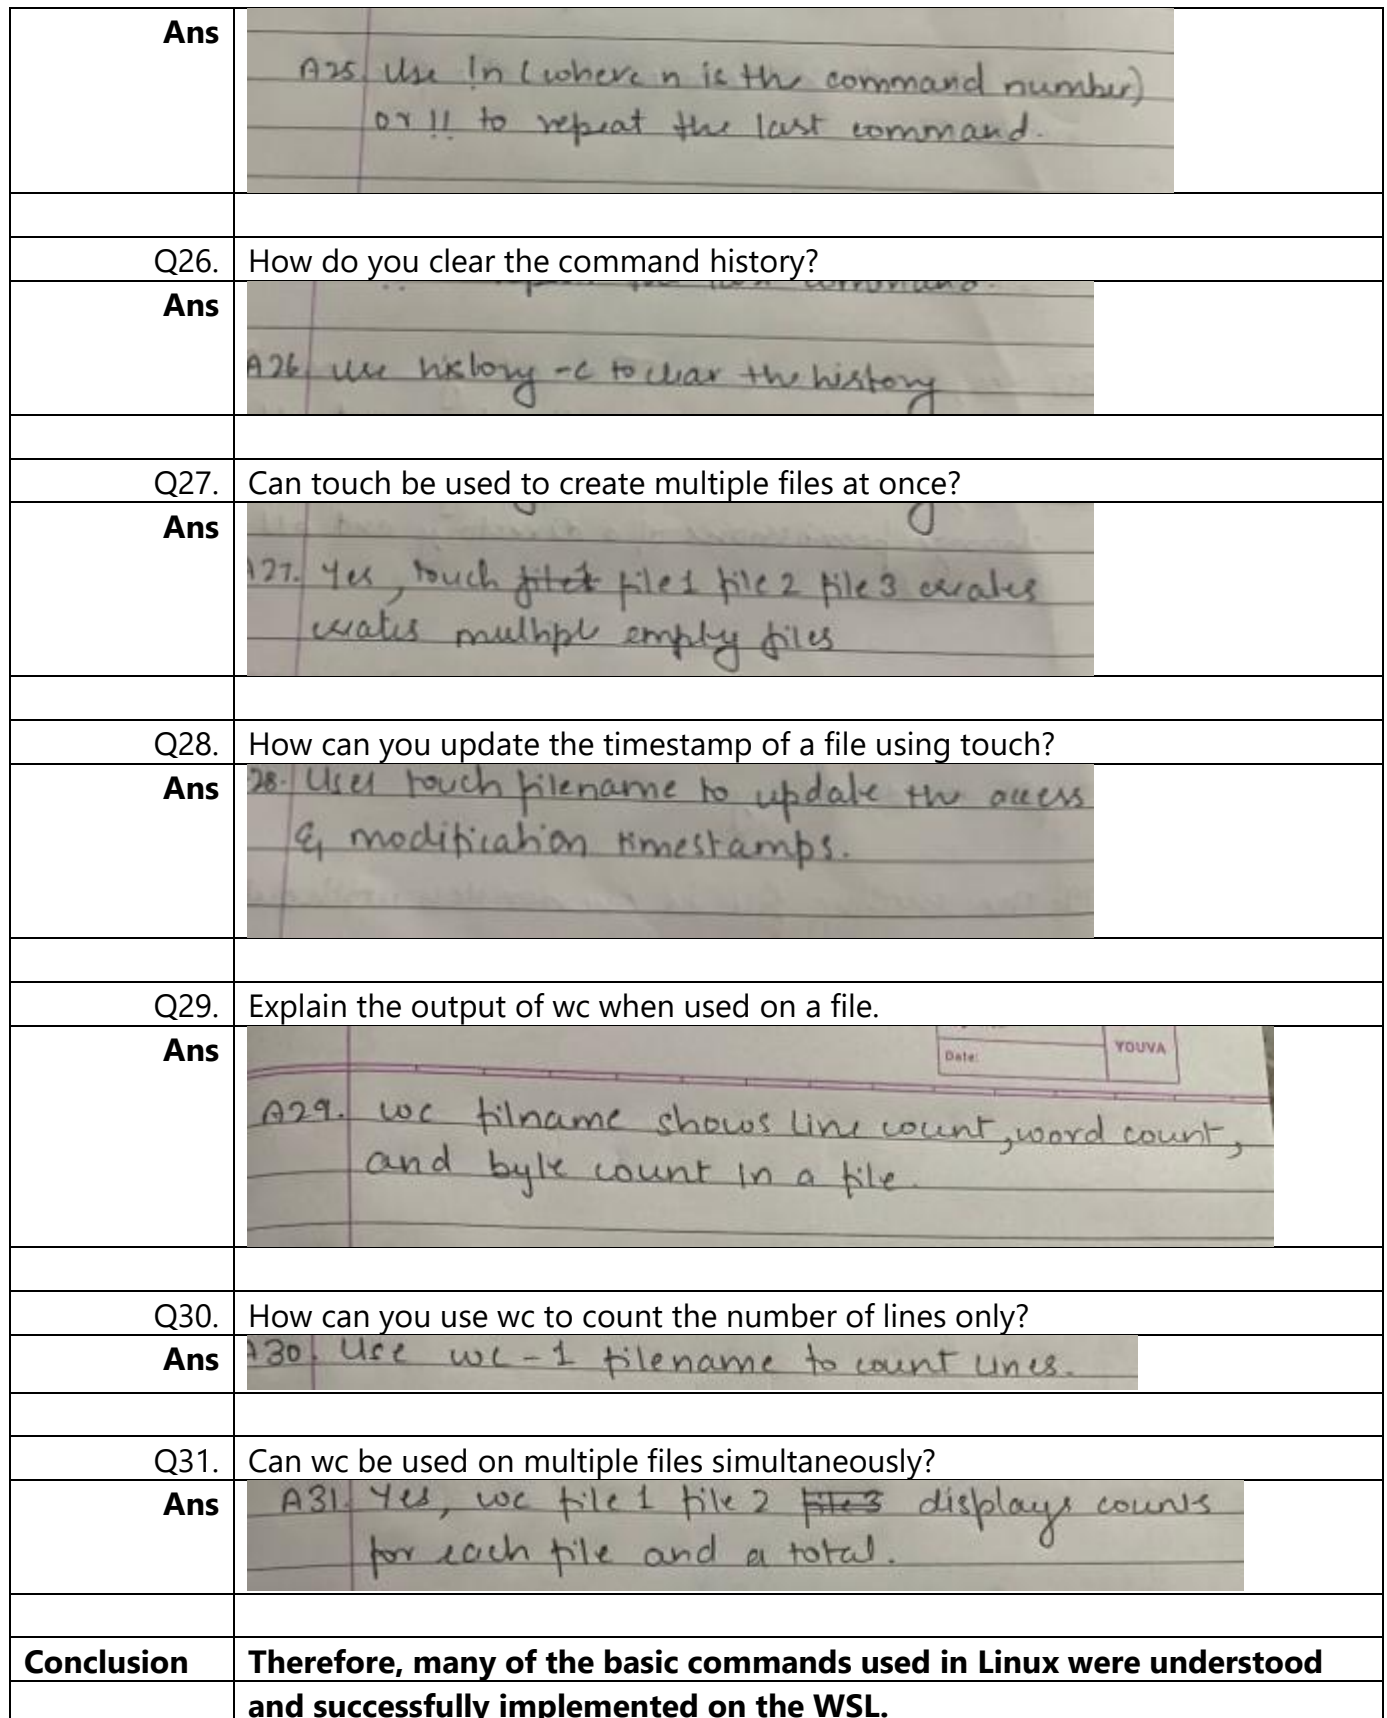 Ans
A25. Use !n (where n is the command number)
or !! to repeat the last command.
Q26. How do you clear the command history?
Ans
repeat the last command.
A26. use history -c to clear the history
Q27. Can touch be used to create multiple files at once?
Ans
A27. Yes, touch file1 file1 file2 file3 creates
creates multiple empty files
Q28. How can you update the timestamp of a file using touch?
Ans
28. Uses touch filename to update the access
& modification timestamps.
Q29. Explain the output of wc when used on a file.
Ans
Date:
YOUVA
A29. wc filname shows line count, word count,
and byte count in a file.
Q30. How can you use wc to count the number of lines only?
Ans
A30. Use wc -1 filename to count lines.
Q31. Can wc be used on multiple files simultaneously?
Ans
A31. Yes, wc file1 file2 file3 displays counts
for each file and a total.
Conclusion Therefore, many of the basic commands used in Linux were understood
and successfully implemented on the WSL.